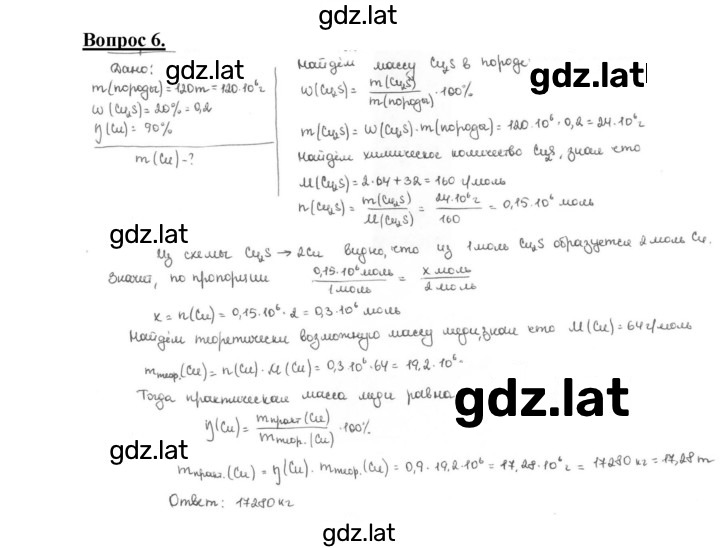 gdz.lat
Вопрос 6.
Дано:
gdz.lat
m(породы) = 120т = 120·10⁶г
w(Cu₂S) = 20% = 0,2
η(Cu) = 90%
m(Cu) - ?
Найдём массу Cu₂S в породе
gdz.lat
w(Cu₂S) = m(Cu₂S) / m(породы) · 100%
m(Cu₂S) = w(Cu₂S) · m(породы) = 120·10⁶ · 0,2 = 24·10⁶г
Найдём химическое количество Cu₂S, зная что
M(Cu₂S) = 2·64 + 32 = 160 г/моль
n(Cu₂S) = m(Cu₂S) / M(Cu₂S) = 24·10⁶г / 160 = 0,15·10⁶ моль
gdz.lat
Из схемы Cu₂S → 2Cu видно, что из 1 моль Cu₂S образуется 2 моль Cu.
Значит, по пропорции 0,15·10⁶ моль / 1 моль = x моль / 2 моль
x = n(Cu) = 0,15·10⁶ · 2 = 0,3·10⁶ моль
Найдём теоретически возможную массу меди, зная что M(Cu) = 64 г/моль
mтеор.(Cu) = n(Cu) · M(Cu) = 0,3·10⁶ · 64 = 19,2·10⁶
Тогда практическая масса меди равна
gdz.lat
η(Cu) = mпракт(Cu) / mтеор.(Cu) · 100%
gdz.lat
mпракт.(Cu) = η(Cu) · mтеор.(Cu) = 0,9 · 19,2·10⁶ = 17,28·10⁶г = 17280 кг = 17,28т
Ответ: 17280 кг
gdz.lat